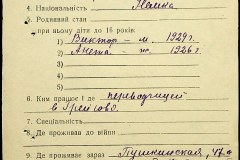 4. Національність
5. Родинний стан
при ньому діти до 16 років:
1) Виктор – м. 1929 г.
2) Анета – ж. 1926 г.
3)
4)
5)
6. Ким працює і де переводчицей
в
7. Спеціальність
8. Де проживав до війни
9. Де проживає зараз Пушкинская, 47